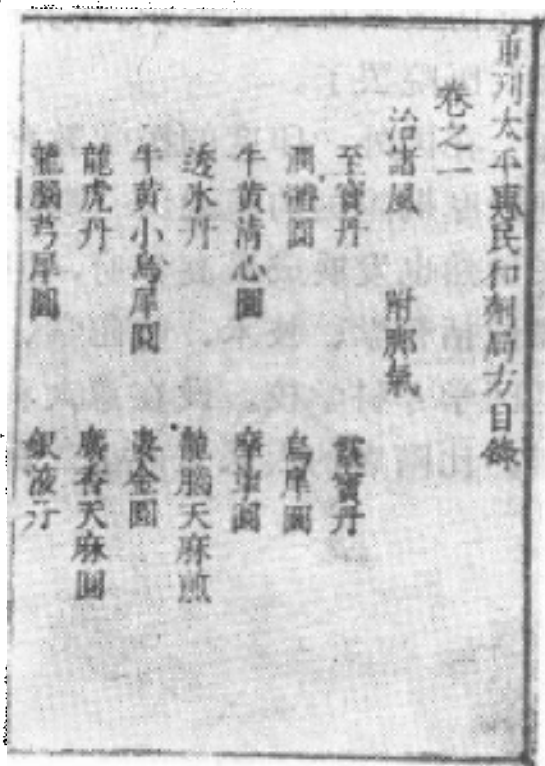 重刋太平惠民和劑局方目錄
卷之一
治諸風 附脚氣
至寶丹 靈寶丹
潤體圓 烏犀圓
牛黃清心圓 摩挲圓
透氷丹 龍腦天麻煎
牛黃小烏犀圓 婁金圓
龍虎丹 麝香天麻圓
龍腦芎犀圓 銀液丹